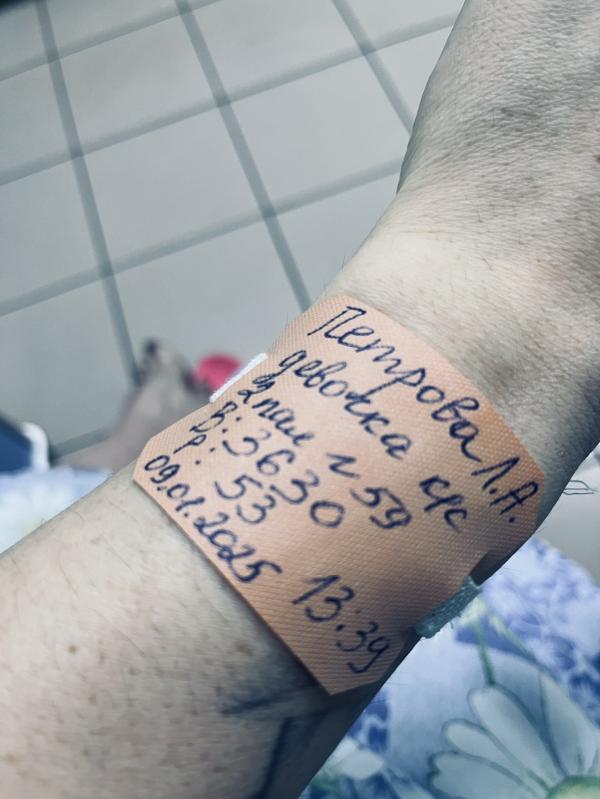 Петрова Л.А.
девочка к/с
2 пал N 59
В: 3630
Р: 53
09.01.2025 13:39